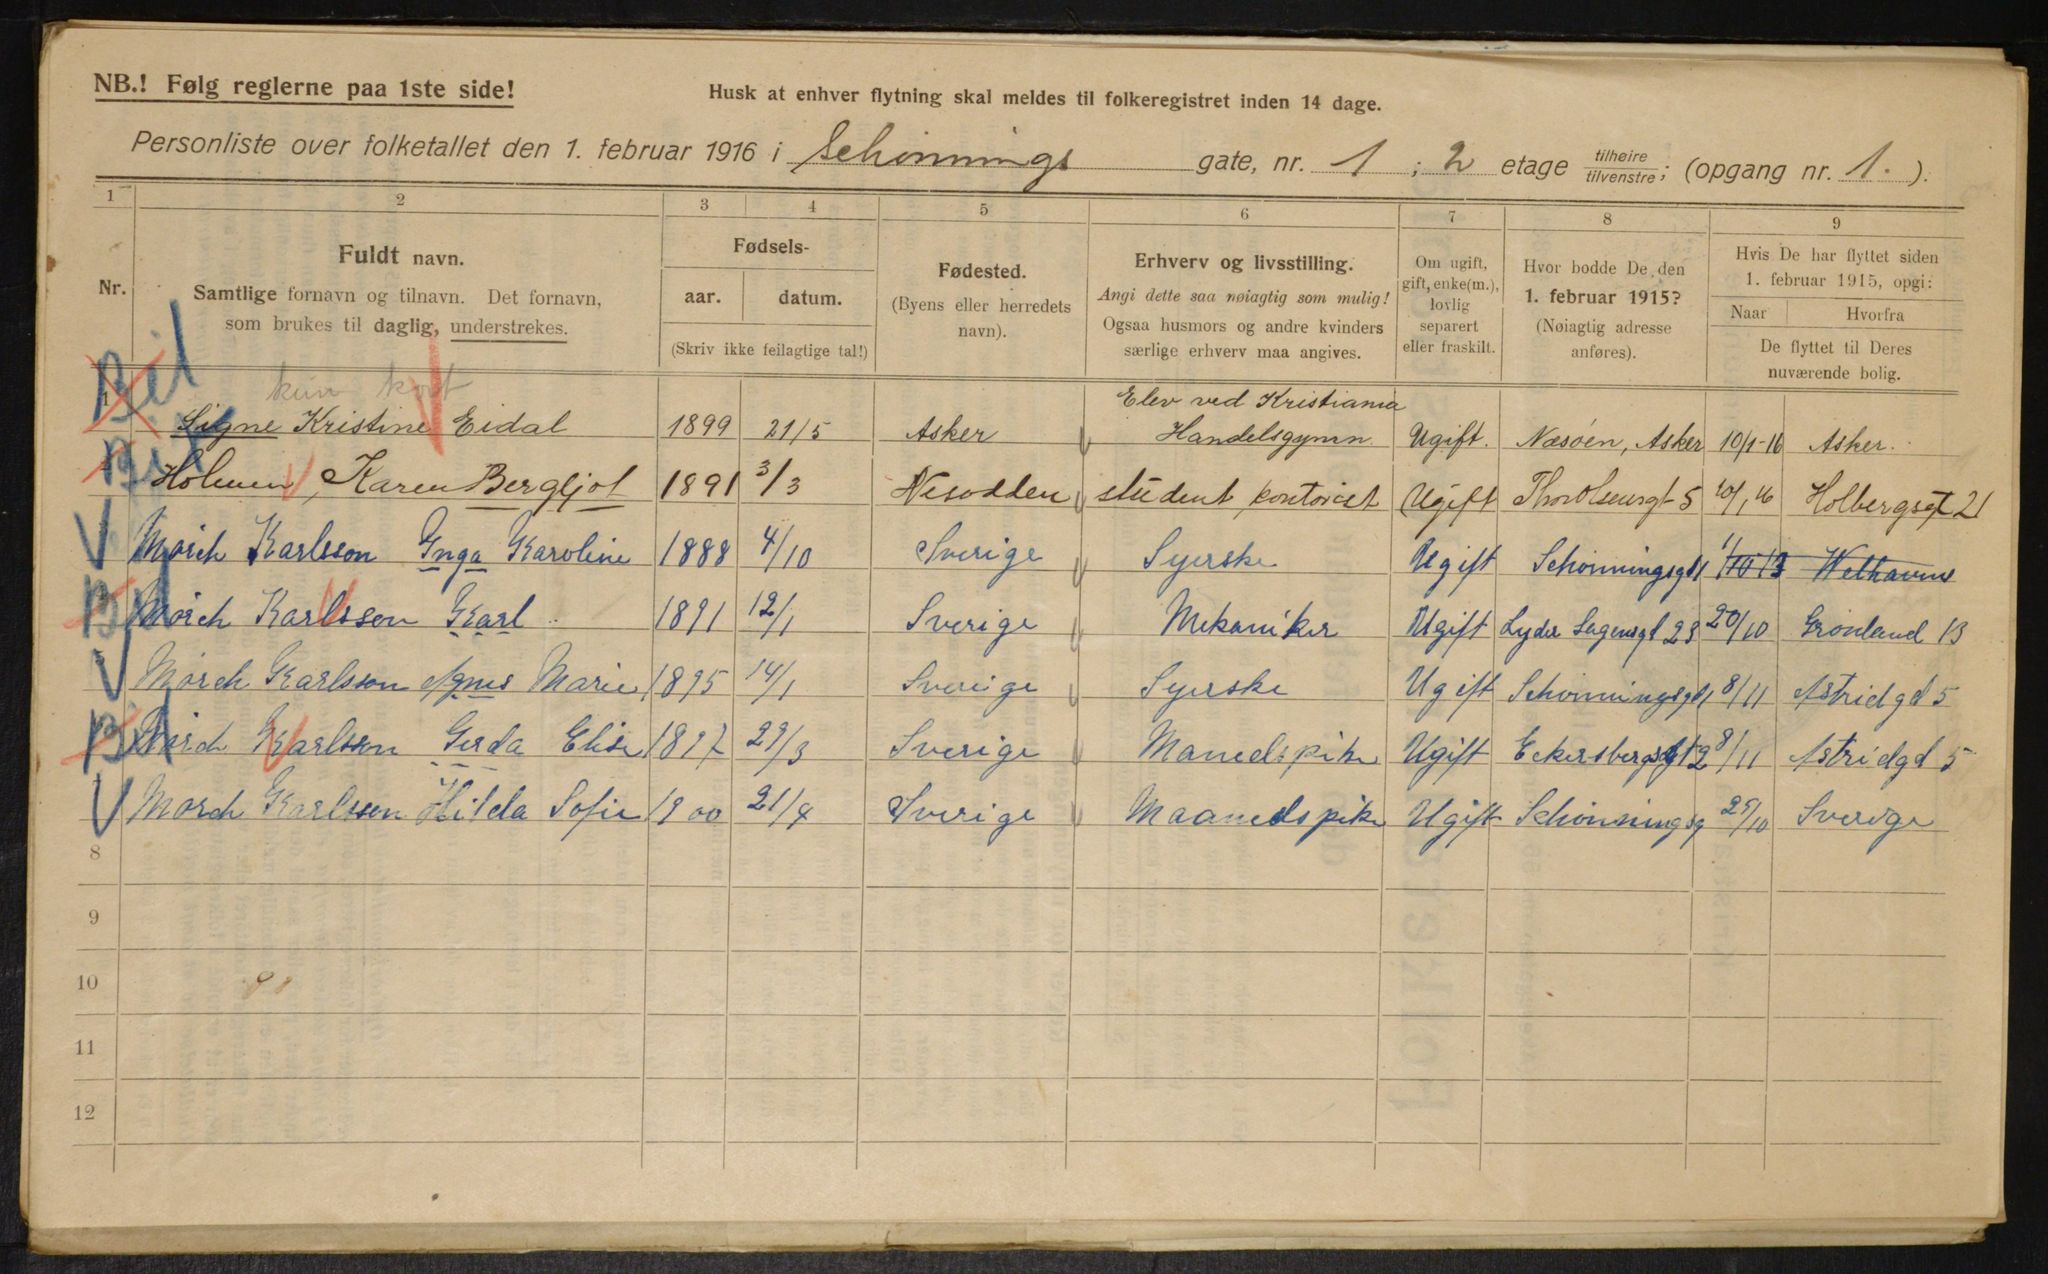 NB.! Følg reglerne paa 1ste side!
Husk at enhver flytning skal meldes til folkeregistret inden 14 dage.
Personliste over folketallet den 1. februar 1916 i Schønnings gate, nr. 1 ; 2 etage tilhøire/tilvenstre; (opgang nr. 1. ).
1 2 3 4 5 6 7 8 9
Nr.
Fuldt navn.
Samtlige fornavn og tilnavn. Det fornavn,
som brukes til daglig, understrekes.
Fødsels-
aar. datum.
(Skriv ikke feilagtige tal!)
Fødested.
(Byens eller herredets
navn).
Erhverv og livsstilling.
Angi dette saa nøiagtig som mulig!
Ogsaa husmors og andre kvinders
særlige erhverv maa angives.
Om ugift,
gift, enke(m.),
lovlig
separert
eller fraskilt.
Hvor bodde De den
1. februar 1915?
(Nøiagtig adresse
anføres).
Hvis De har flyttet siden
1. februar 1915, opgi:
Naar Hvorfra
De flyttet til Deres
nuværende bolig.
kun kort
Elev ved Kristiania
1 Signe Kristine Eidal 1899 21/5 Asker Handelsgymn. Ugift. Næsøen, Asker 10/1-16 Asker.
Holmen, Karen Bergljot 1891 3/3 Nesodden student, kontorist Ugift Thor Olsensgt 5 10/1 16 Holbergsgt 21
Mørch Karlsson Inga Karoline 1888 4/10 Sverige Syerske Ugift Schønningsgt 1 11/10 13 Welhavns
Mørch Karlsson Karl 1891 12/1 Sverige Mekaniker Ugift Lyder Sagensgt 23 20/10 Grønland 13
Mørch Karlsson Agnes Marie 1895 14/1 Sverige Syerske Ugift Schønningsgt 1 8/11 Astridgd 5
Mørch Karlsson Gerda Elise 1897 29/3 Sverige Manedspike Ugift Eckersbergsgt 12 8/11 Astridgd 5
Mørch Karlsson Hilda Sofie 1900 21/4 Sverige Maanedspike Ugift Schønningsg 29/10 Sverige
8
9
10
11
12